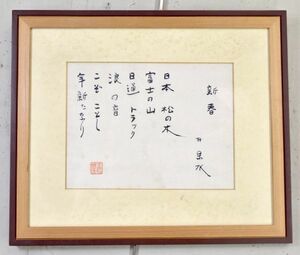 新春
井泉水
日本 松の木
富士の山
日通 トラック
浪の音
こぞことし
年新たなり